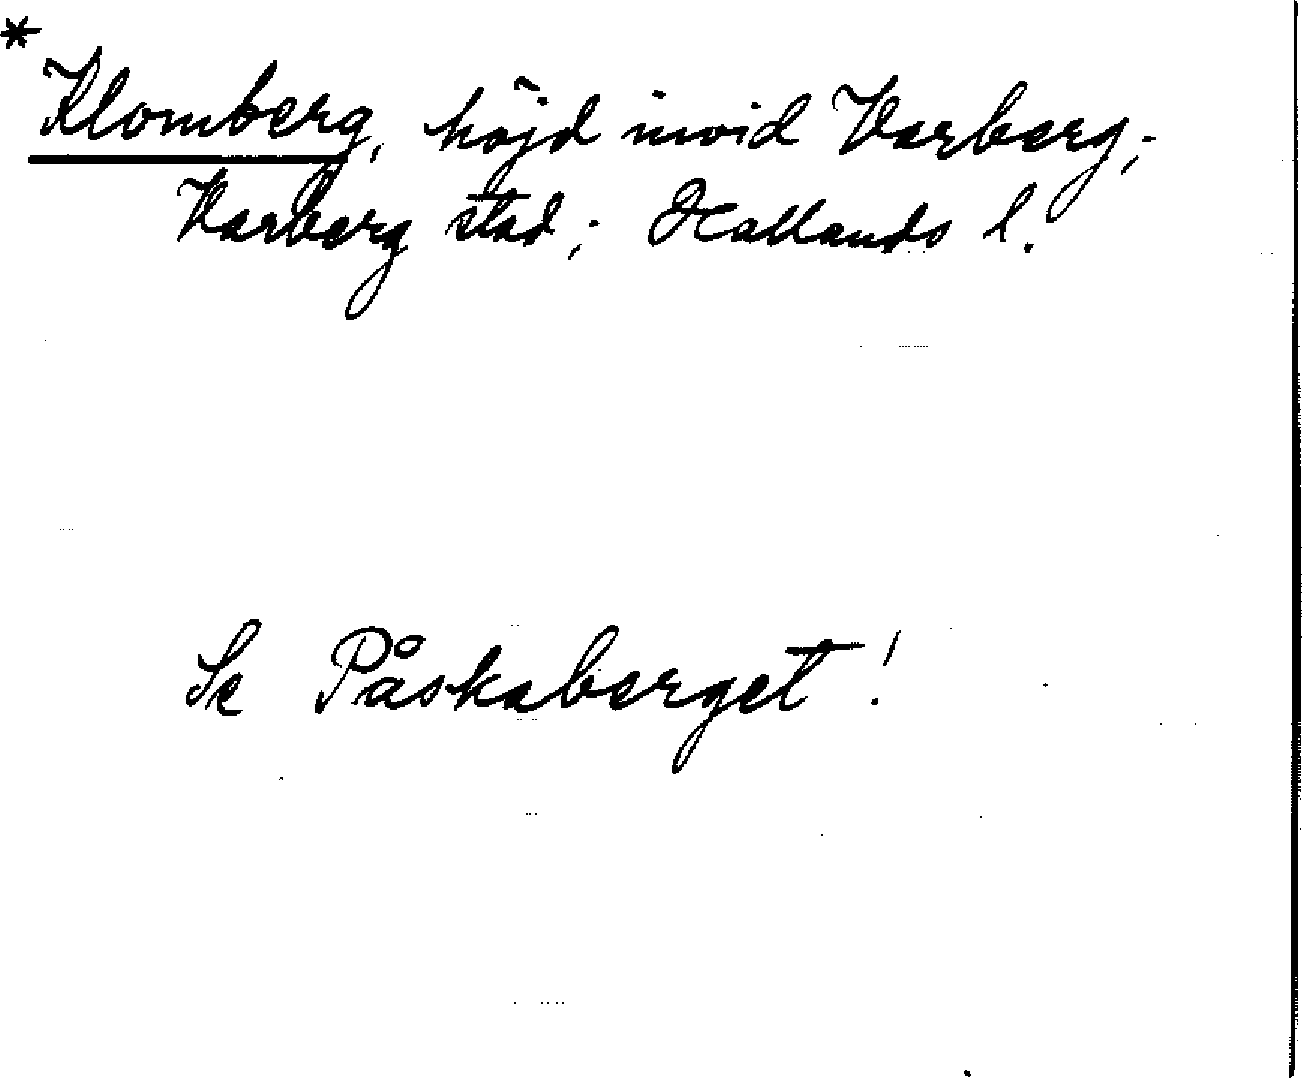 * Klomberg, höjd invid Varberg;
Varberg stad; Hallands l.
Se Påskaberget!